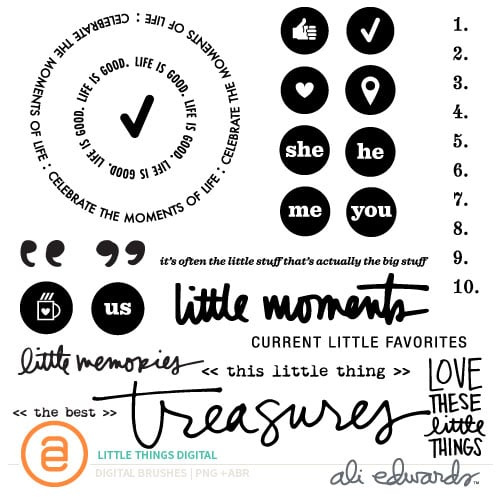 CELEBRATE THE MOMENTS OF LIFE : CELEBRATE THE MOMENTS OF LIFE :
LIFE IS GOOD. LIFE IS GOOD. LIFE IS GOOD. LIFE IS GOOD. LIFE IS GOOD.
she
he
me
you
1.
2.
3.
4.
5.
6.
7.
8.
9.
10.
it's often the little stuff that's actually the big stuff
us
little moments
CURRENT LITTLE FAVORITES
little memories
<< this little thing >>
<< the best >>
treasures
LOVE
THESE
little
THINGS
ae
LITTLE THINGS DIGITAL
DIGITAL BRUSHES | PNG + ABR
ali edwards™